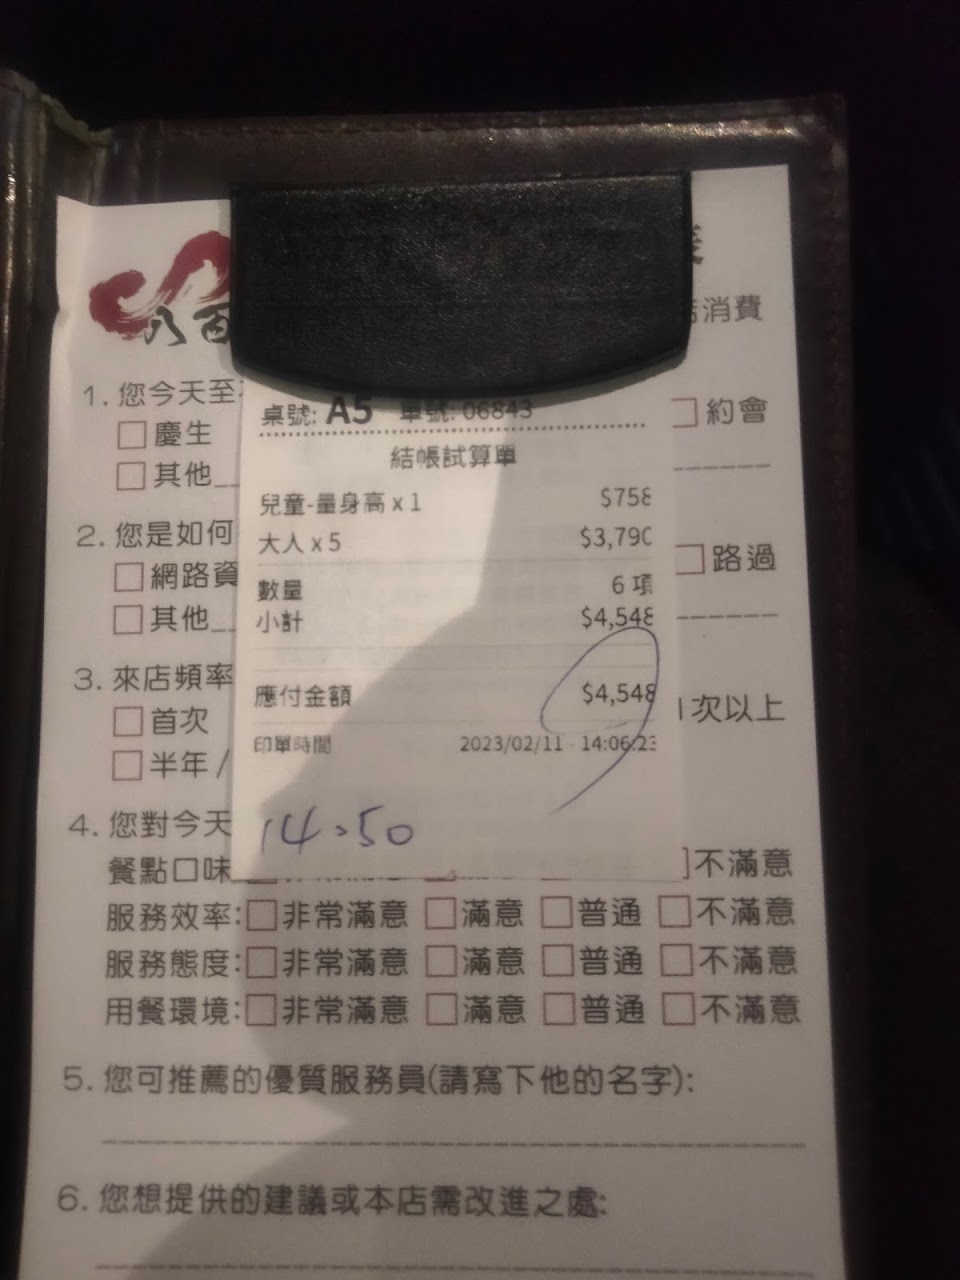 八百
消費
1. 您今天至
慶生
約會
其他__
桌號: A5 單號: 06843
結帳試算單
兒童-量身高 x 1 $758
大人 x 5 $3,790
數量 6 項
小計 $4,548
應付金額 $4,548
印單時間 2023/02/11 - 14:06:23
14:50
2. 您是如何
網路資
路過
其他__
3. 來店頻率
首次
1次以上
半年 /
4. 您對今天
餐點口味 不滿意
服務效率: 非常滿意 滿意 普通 不滿意
服務態度: 非常滿意 滿意 普通 不滿意
用餐環境: 非常滿意 滿意 普通 不滿意
5. 您可推薦的優質服務員(請寫下他的名字):
6. 您想提供的建議或本店需改進之處: